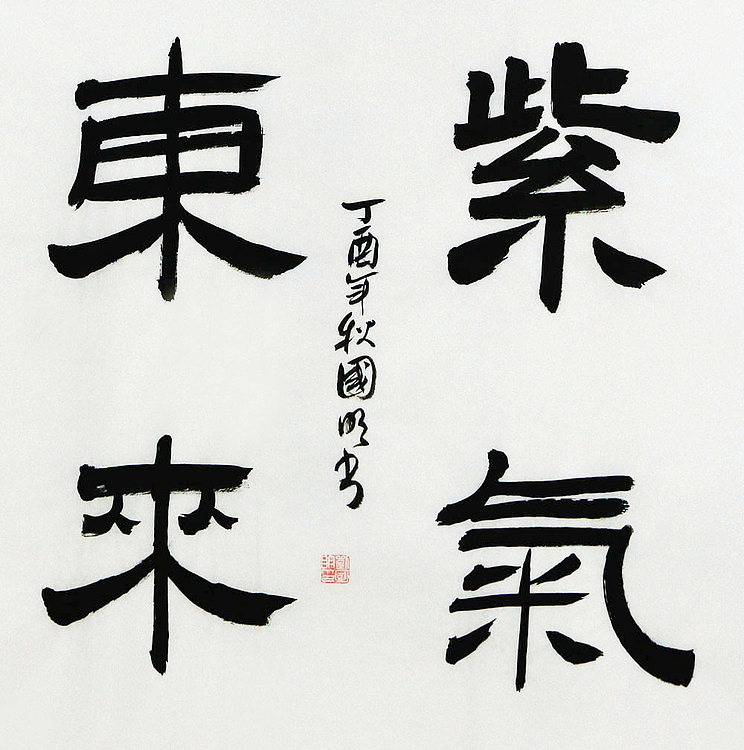 紫氣
東來
丁酉年秋國明书